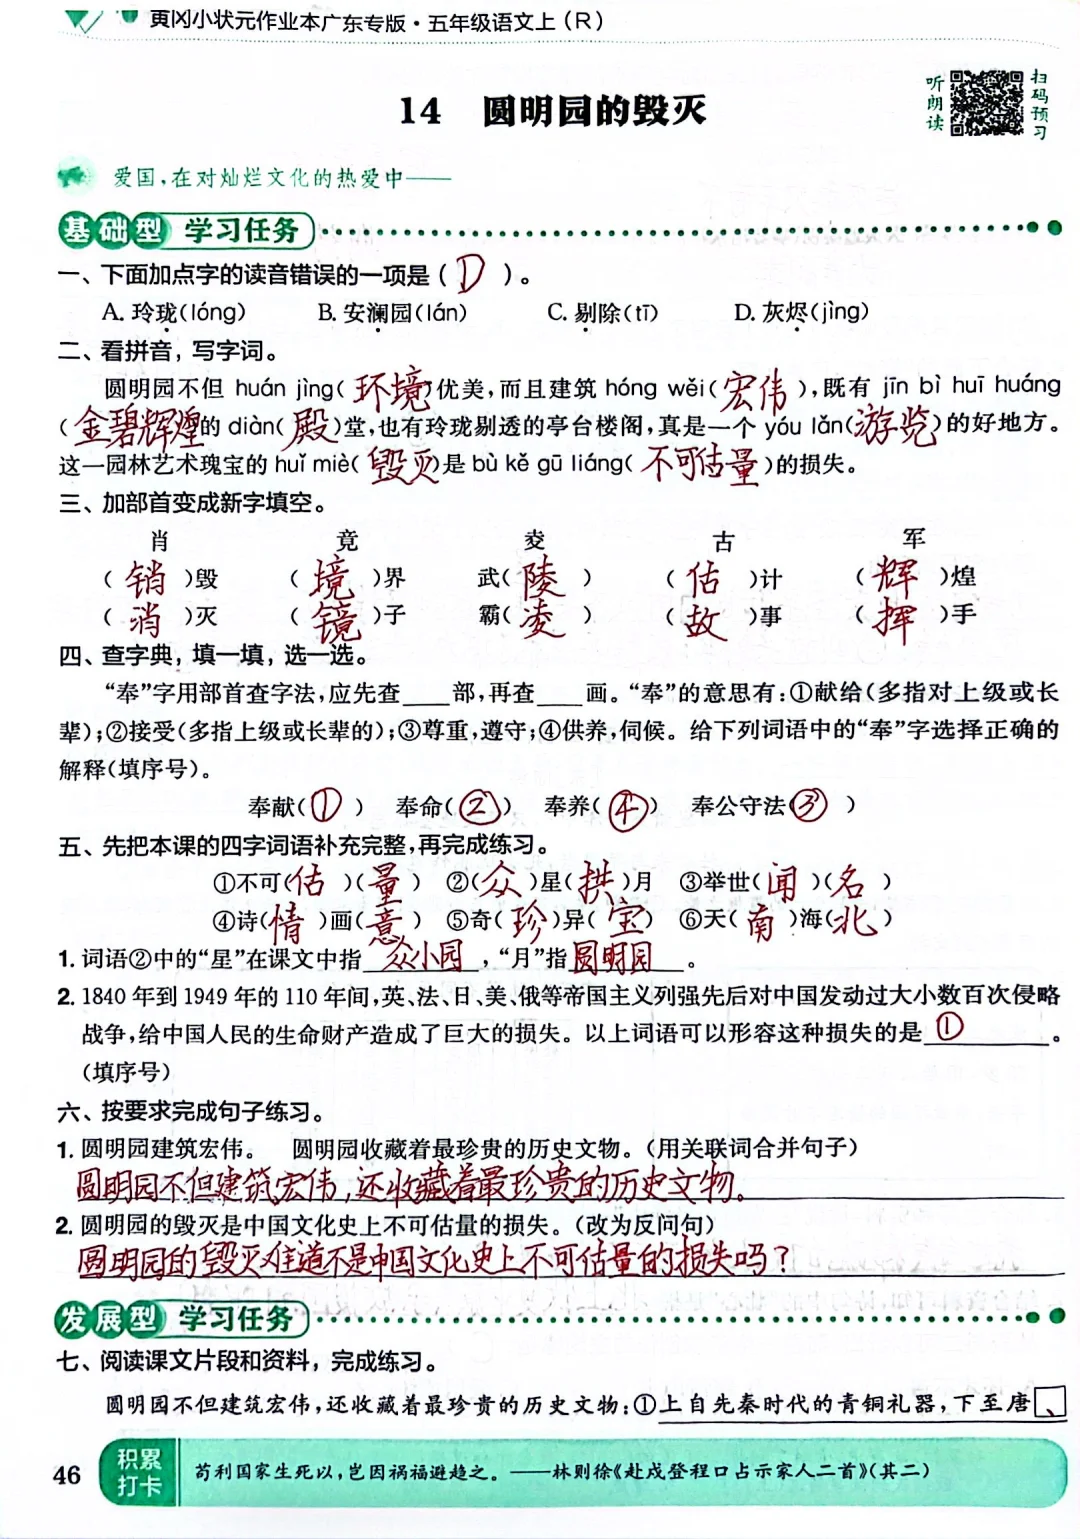 黄冈小状元作业本广东专版·五年级语文上(R)
14 圆明园的毁灭
听朗读
扫码预习
爱国,在对灿烂文化的热爱中——
基础型 学习任务
一、下面加点字的读音错误的一项是( D )。
A. 玲珑(lóng) B. 安澜园(lán) C. 剔除(tī) D. 灰烬(jìng)
二、看拼音,写字词。
圆明园不但 huán jìng( 环境 )优美,而且建筑 hóng wěi( 宏伟 ),既有 jīn bì huī huáng
( 金碧辉煌 )的 diàn( 殿 )堂,也有玲珑剔透的亭台楼阁,真是一个 yóu lǎn( 游览 )的好地方。
这一园林艺术瑰宝的 huǐ miè( 毁灭 )是 bù kě gū liáng( 不可估量 )的损失。
三、加部首变成新字填空。
肖 竟 夌 古 军
( 销 )毁 ( 境 )界 武( 陵 ) ( 估 )计 ( 辉 )煌
( 消 )灭 ( 镜 )子 霸( 凌 ) ( 故 )事 ( 挥 )手
四、查字典,填一填,选一选。
“奉”字用部首查字法,应先查____部,再查____画。“奉”的意思有:①献给(多指对上级或长
辈);②接受(多指上级或长辈的);③尊重,遵守;④供养,伺候。给下列词语中的“奉”字选择正确的
解释(填序号)。
奉献( ① ) 奉命( ② ) 奉养( ④ ) 奉公守法( ③ )
五、先把本课的四字词语补充完整,再完成练习。
①不可( 估 )( 量 ) ②( 众 )星( 拱 )月 ③举世( 闻 )( 名 )
④诗( 情 )画( 意 ) ⑤奇( 珍 )异( 宝 ) ⑥天( 南 )海( 北 )
1. 词语②中的“星”在课文中指 众小园 ,“月”指 圆明园 。
2. 1840 年到 1949 年的 110 年间,英、法、日、美、俄等帝国主义列强先后对中国发动过大小数百次侵略
战争,给中国人民的生命财产造成了巨大的损失。以上词语可以形容这种损失的是 ① 。
(填序号)
六、按要求完成句子练习。
1. 圆明园建筑宏伟。 圆明园收藏着最珍贵的历史文物。(用关联词合并句子)
圆明园不但建筑宏伟,还收藏着最珍贵的历史文物。
2. 圆明园的毁灭是中国文化史上不可估量的损失。(改为反问句)
圆明园的毁灭难道不是中国文化史上不可估量的损失吗?
发展型 学习任务
七、阅读课文片段和资料,完成练习。
圆明园不但建筑宏伟,还收藏着最珍贵的历史文物:①上自先秦时代的青铜礼器,下至唐 、
46 积累打卡 苟利国家生死以,岂因祸福避趋之。——林则徐《赴戍登程口占示家人二首》(其二)